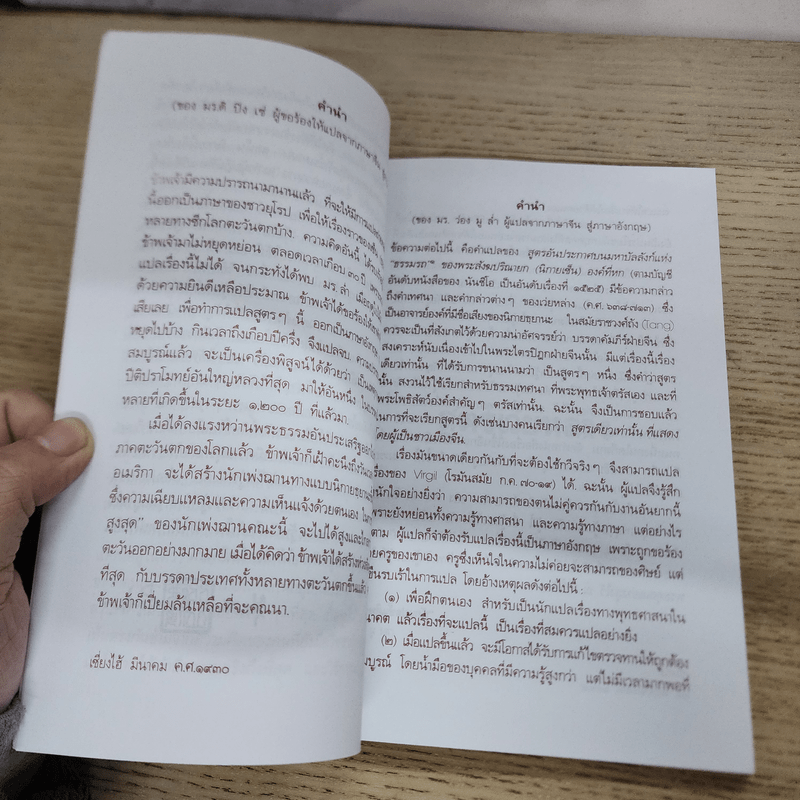 คำนำ
(ของ มร.ดิ ปิง เซ่ ผู้ขอร้องให้แปลจากภาษาจีน
ข้าพเจ้ามีความปรารถนามานานแล้ว ที่จะให้มีการแปล
นี้ออกเป็นภาษาของชาวยุโรป เพื่อให้เรื่องราวของ
หลายทางซีกโลกตะวันตกบ้าง. ความคิดอันนี้ ได้
ข้าพเจ้ามาไม่หยุดหย่อน ตลอดเวลาเกือบ ๓๐ ปี
แปลเรื่องนี้ไม่ได้ จนกระทั่งได้พบ มร.ล่ำ เมื่อ
ด้วยความยินดีเหลือประมาณ ข้าพเจ้าได้ขอร้องให้
เสียเลย เพื่อทำการแปลสูตรๆ นี้ ออกเป็นภาษาอังกฤษ
หยุดไปบ้าง กินเวลาถึงเกือบปีครึ่ง จึงแปลจบ.
สมบูรณ์แล้ว จะเป็นเครื่องพิสูจน์ได้ด้วยว่า เป็น
ปีติปราโมทย์อันใหญ่หลวงที่สุด มาให้อันหนึ่ง ใน
หลายที่เกิดขึ้นในระยะ ๑,๒๐๐ ปี ที่แล้วมา.
เมื่อได้ลงแรงหว่านพระธรรมอันประเสริฐ
ภาคตะวันตกของโลกแล้ว ข้าพเจ้าก็เฝ้าคะนึงถึงวัน
อเมริกา จะได้สร้างนักเพ่งฌานทางแบบนิกายธยานะ
ซึ่งความเฉียบแหลมและความเห็นแจ้งด้วยตนเอง
สูงสุด” ของนักเพ่งฌานคณะนี้ จะไปได้สูงและ
ตะวันออกอย่างมากมาย เมื่อได้คิดว่า ข้าพเจ้าได้สร้าง
ที่สุด กับบรรดาประเทศทั้งหลายทางตะวันตกขึ้นแล้ว
ข้าพเจ้าก็เปี่ยมล้นเหลือที่จะคณนา.
เซี่ยงไฮ้ มีนาคม ค.ศ.๑๙๓๐
คำนำ
(ของ มร. ว่อง มู ล่ำ ผู้แปลจากภาษาจีน สู่ภาษาอังกฤษ)
ข้อความต่อไปนี้ คือคำแปลของ สูตรอันประกาศบนมหาบัลลังก์แห่ง
“ธรรมรถ” ของพระสังฆปริณายก (นิกายเซ็น) องค์ที่หก (ตามบัญชี
อันดับหนังสือของ นันชีโอ เป็นอันดับเรื่องที่ ๑๕๒๕) มีข้อความกล่าว
ถึงคำเทศนา และคำกล่าวต่างๆ ของเว่ยหล่าง (ค.ศ. ๖๓๘-๗๑๓) ซึ่ง
เป็นอาจารย์องค์ที่มีชื่อเสียงของนิกายธยานะ ในสมัยราชวงศ์ถัง (Tang)
ควรจะเป็นที่สังเกตไว้ด้วยความน่าอัศจรรย์ว่า บรรดาคัมภีร์ฝ่ายจีน ซึ่ง
สงเคราะห์นับเนื่องเข้าไปในพระไตรปิฎกฝ่ายจีนนั้น มีแต่เรื่องนี้เรื่อง
เดียวเท่านั้น ที่ได้รับการขนานนามว่า เป็นสูตรๆ หนึ่ง ซึ่งคำว่าสูตร
นั้น สงวนไว้ใช้เรียกสำหรับธรรมเทศนา ที่พระพุทธเจ้าตรัสเอง และที่
พระโพธิสัตว์องค์สำคัญๆ ตรัสเท่านั้น. ฉะนั้น จึงเป็นการชอบแล้ว
ในการที่จะเรียกสูตรนี้ ดังเช่นบางคนเรียกว่า สูตรเดียวเท่านั้น ที่แสดง
โดยผู้เป็นชาวเมืองจีน.
เรื่องมันขนาดเดียวกันกับที่จะต้องใช้กวีจริงๆ จึงสามารถแปล
เรื่องของ Virgil (โรมันสมัย ก.ค. ๗๐-๑๙) ได้. ฉะนั้น ผู้แปลจึงรู้สึก
นักใจอย่างยิ่งว่า ความสามารถของตนไม่คู่ควรกันกับงานอันยากนี้
เพราะยังหย่อนทั้งความรู้ทางศาสนา และความรู้ทางภาษา แต่อย่างไร
ตาม ผู้แปลก็จำต้องรับแปลเรื่องนี้เป็นภาษาอังกฤษ เพราะถูกขอร้อง
ยครูของเขาเอง ครูซึ่งเห็นใจในความไม่ค่อยจะสามารถของศิษย์ แต่
ขืนรบเร้าในการแปล โดยอ้างเหตุผลดังต่อไปนี้ :
(๑) เพื่อฝึกตนเอง สำหรับเป็นนักแปลเรื่องทางพุทธศาสนาใน
นาคต แล้วเรื่องที่จะแปลนี้ เป็นเรื่องที่สมควรแปลอย่างยิ่ง
(๒) เมื่อแปลขึ้นแล้ว จะมีโอกาสได้รับการแก้ไขตรวจทานให้ถูกต้อง
มบูรณ์ โดยน้ำมือของบุคคลที่มีความรู้สูงกว่า แต่ไม่มีเวลามากพอที่